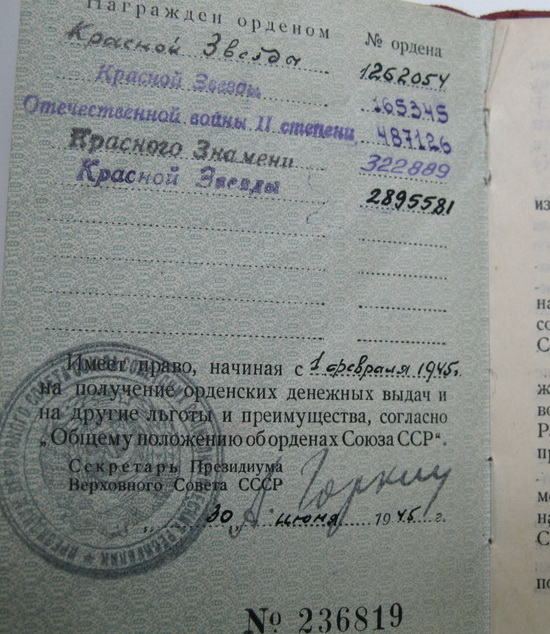 Награжден орденом № ордена
Красной Звезды 1262054
Красной Звезды 165345
Отечественной войны II степени 487126
Красного Знамени 322889
Красной Звезды 2895581
Имеет право, начиная с 1 февраля 1945г.
на получение орденских денежных выдач и
на другие льготы и преимущества, согласно
„Общему положению об орденах Союза ССР“.
Секретарь Президиума
Верховного Совета СССР
А. Горкин
30 июня 1945 г.
№ 236819